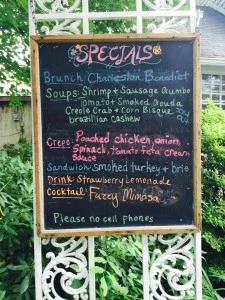 SPECIALS
Brunch: Charleston Benedict
Soups: Shrimp + Sausage Gumbo
Tomato + Smoked Gouda
Creole Crab + Corn Bisque
brazilian Cashew
Crepe: Poached chicken, onion,
Spinach, tomato feta cream
Sauce
Sandwich: smoked turkey & brie
Drink: Strawberry Lemonade
Cocktail: Fuzzy Mimosa
Please no cell phones